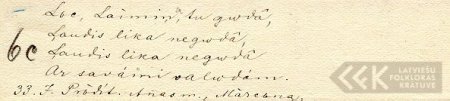 Lec, Laimiņ, tu gudrā,
6c Ļaudis lika negudrā,
Ļaudis lika negudrā
Ar savāmi valodām.
33. J. Prōdīt. Annm., Mārcena,
LATVIEŠU
FOLKLORAS
KRĀTUVE